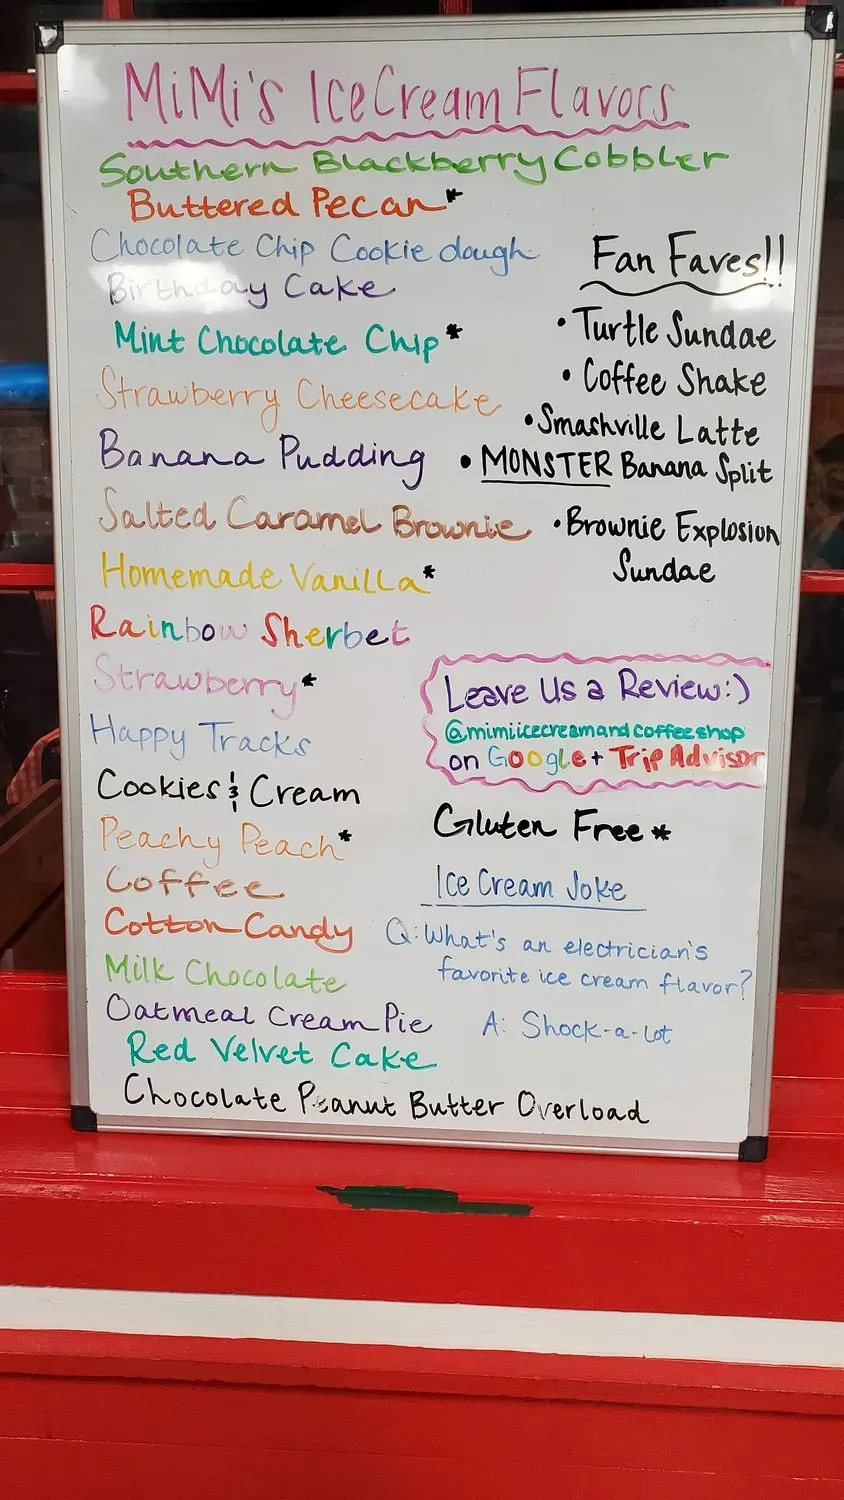 MiMi's Ice Cream Flavors
Southern Blackberry Cobbler
Buttered Pecan*
Chocolate Chip Cookie dough
Birthday Cake
Mint Chocolate Chip*
Strawberry Cheesecake
Banana Pudding
Salted Caramel Brownie
Homemade Vanilla*
Rainbow Sherbet
Strawberry*
Happy Tracks
Cookies & Cream
Peachy Peach*
Coffee
Cotton Candy
Milk Chocolate
Oatmeal Cream Pie
Red Velvet Cake
Chocolate Peanut Butter Overload
Fan Faves!!
• Turtle Sundae
• Coffee Shake
• Smashville Latte
• MONSTER Banana Split
• Brownie Explosion
Sundae
Leave Us a Review:)
@mimiicecreamandcoffeeshop
on Google + Trip Advisor
Gluten Free *
Ice Cream Joke
Q: What's an electrician's
favorite ice cream flavor?
A: Shock-a-lot